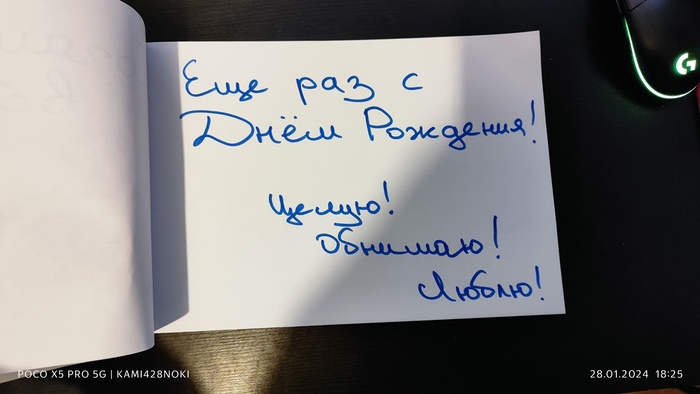 Еще раз с
Днём Рождения!
Целую!
Обнимаю!
Люблю!
POCO X5 PRO 5G | KAMI428NOKI
28.01.2024 18:25